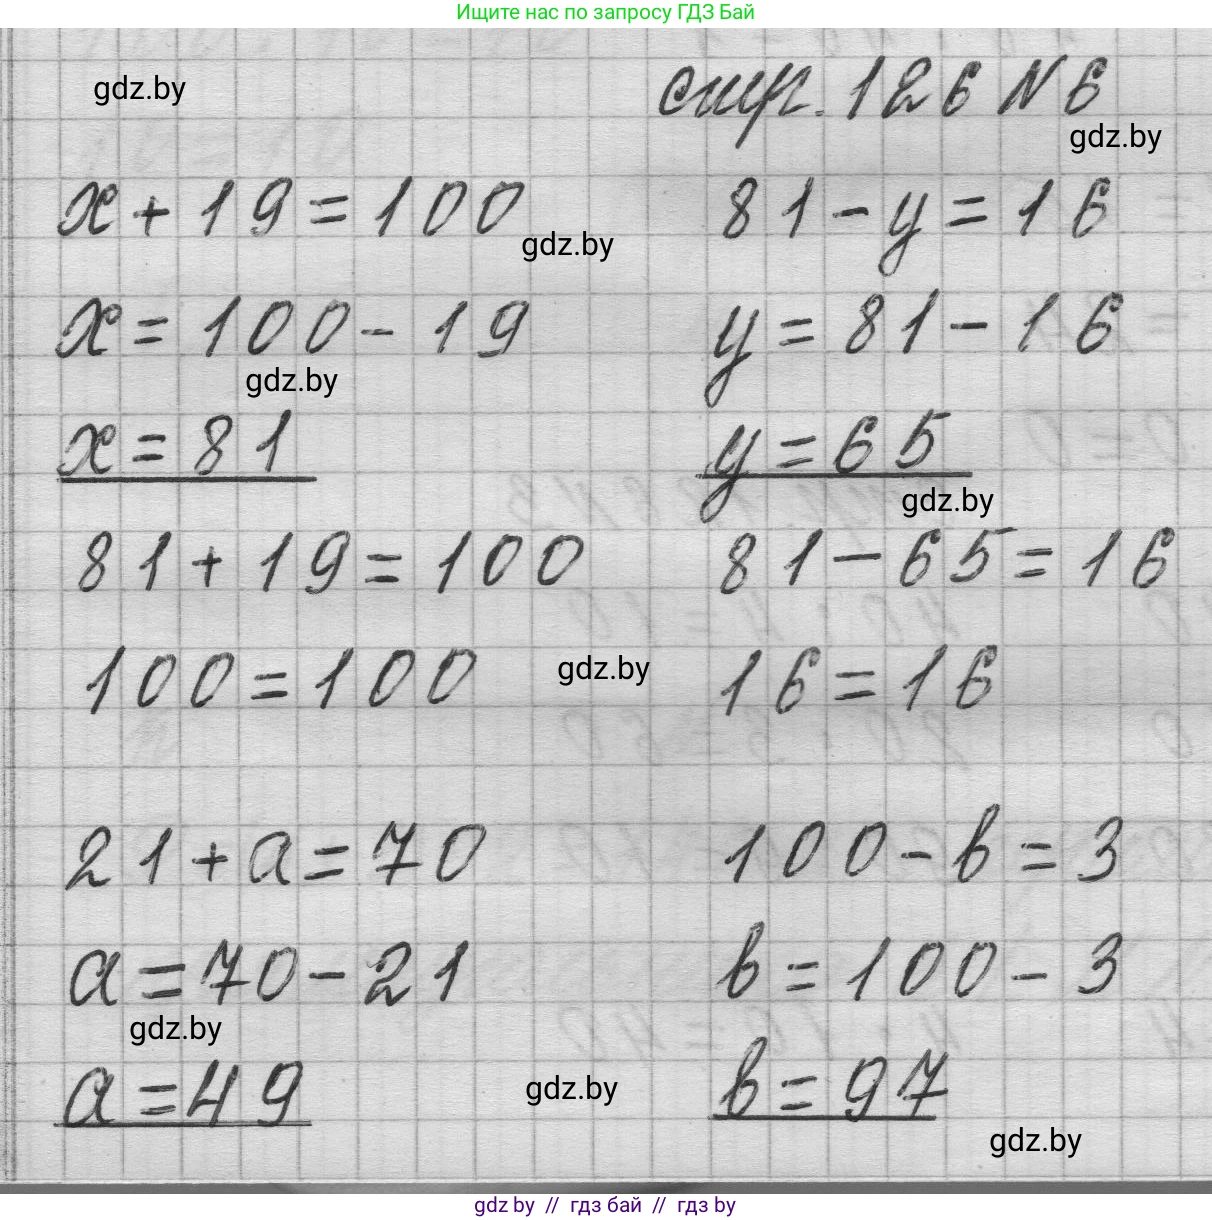 Ищите нас по запросу ГДЗ Бай
gdz.by
стр. 126 N 6
gdz.by
x + 19 = 100
81 - y = 16
gdz.by
x = 100 - 19
y = 81 - 16
gdz.by
x = 81
y = 65
gdz.by
81 + 19 = 100
81 - 65 = 16
100 = 100
gdz.by
16 = 16
21 + a = 70
100 - в = 3
a = 70 - 21
в = 100 - 3
gdz.by
a = 49
gdz.by
в = 97
gdz.by
gdz by // гдз бай // гдз by